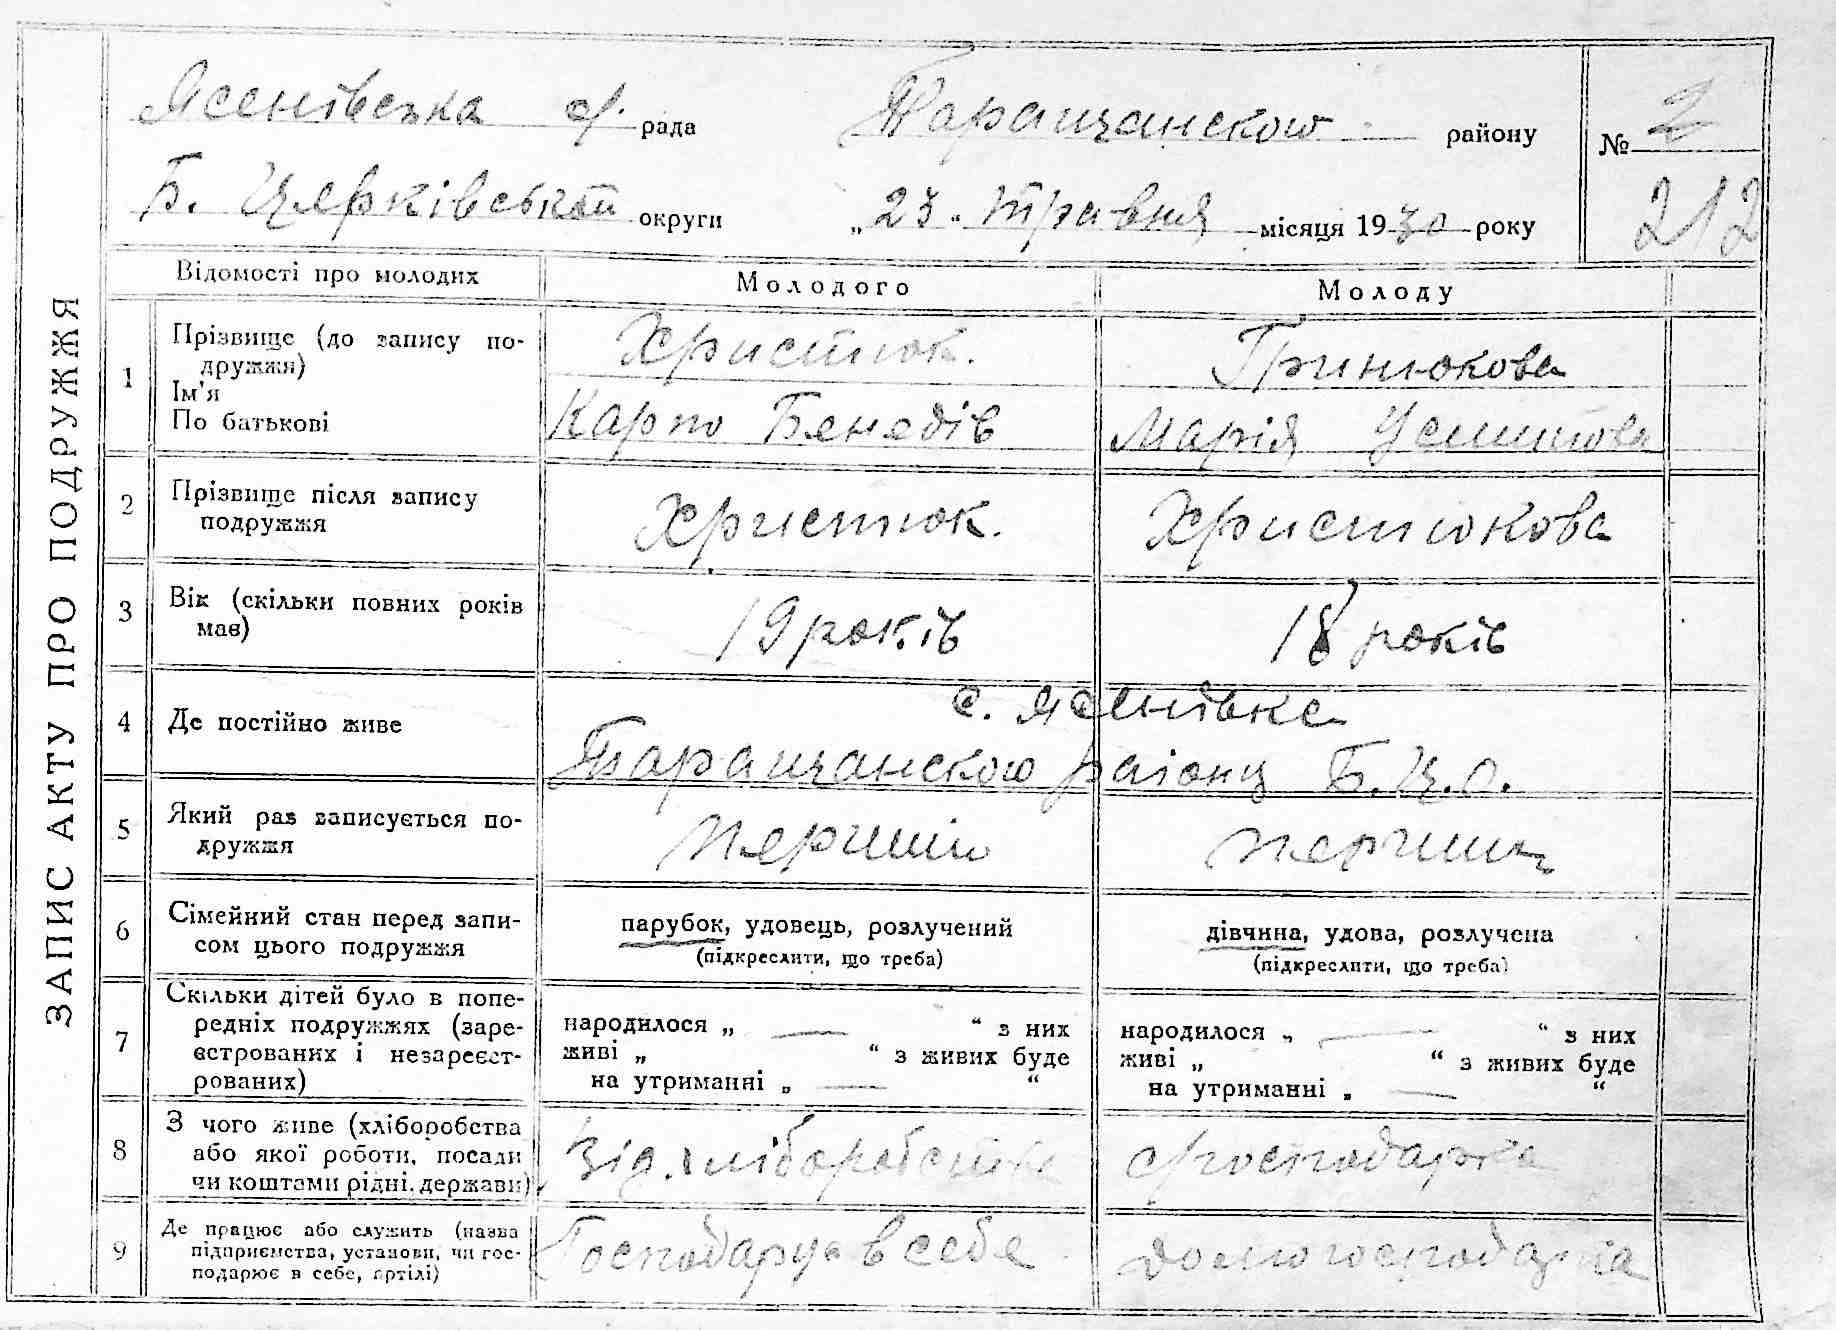 ЗАПИС АКТУ ПРО ПОДРУЖЖЯ
Ясенівська с/. рада Таращанского району № 2
Б. Церківської округи „23“ травня місяця 1930 року 212
Відомості про молодих Молодого Молоду
1 Прізвище (до запису по-
дружжя) Христюк. Гринюкова
Ім'я
По батькові Карпо Бенедів Марія
2 Прізвище після запису
подружжя Христюк. Христюкова
3 Вік (скільки повних років
має) 19 років 18 років
с. Ясенівка
4 Де постійно живе
Таращанского району Б.Ц.О.
5 Який раз записується по-
дружжя перший перший
6 Сімейний стан перед запи-
сом цього подружжя
парубок, удовець, розлучений дівчина, удова, розлучена
(підкреслити, що треба) (підкреслити, що треба)
7 Скільки дітей було в попе-
редніх подружжях (заре-
єстрованих і незареєст-
рованих)
народилося „ — “ з них народилося „ — “ з них
живі „ “ з живих буде живі „ “ з живих буде
на утриманні „ — “ на утриманні „ — “
8 З чого живе (хліборобства
або якої роботи, посади
чи коштами рідні, держави)
Від хліборобства господарка
9 Де працює або служить (назва
підприємства, установи, чи гос-
подарює в себе, артілі)
Господарує в себе домогосподарка